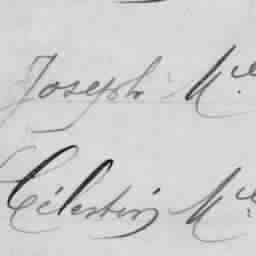 Joseph Mce
Célestin Mce